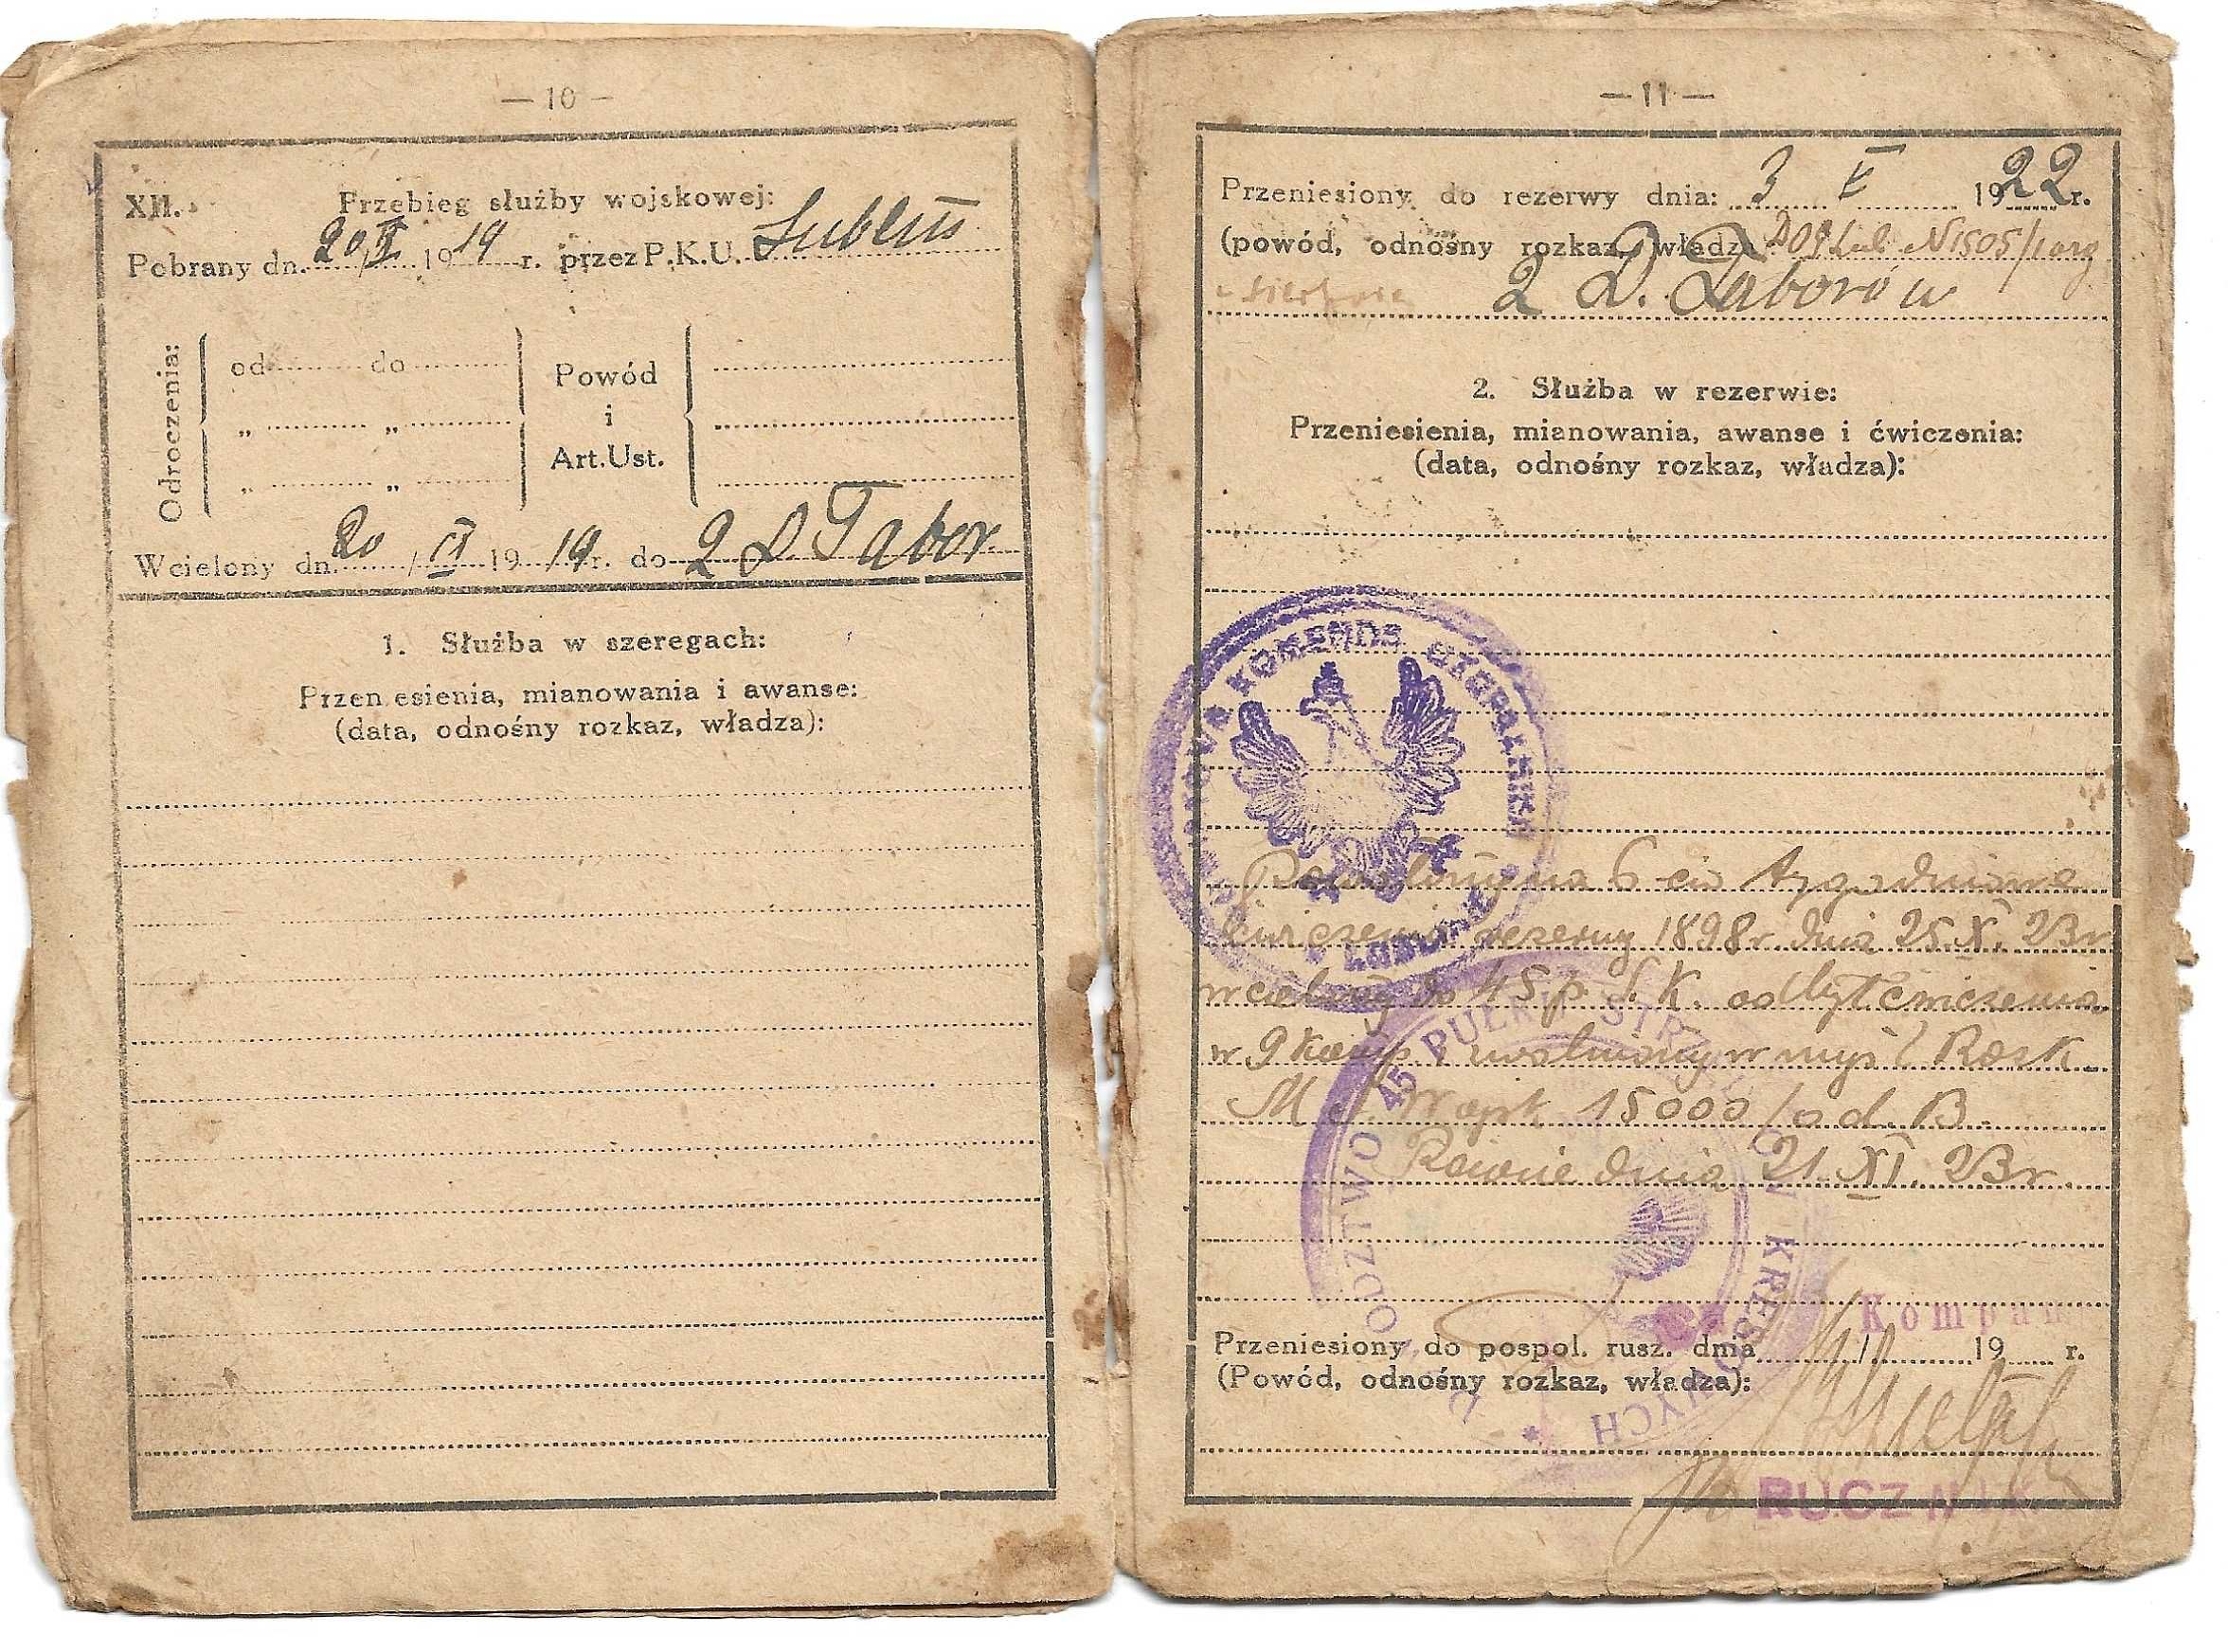 — 10 —
XII. Przebieg służby wojskowej:
Pobrany dn. 20/II 1919 r. przez P.K.U. Lublin
Odroczenia:
od do
„ „
„ „
Powód
i
Art.Ust.
Wcielony dn. 20/II 1919 r. do 2 D Tabor.
1. Służba w szeregach:
Przen esienia, mianowania i awanse:
(data, odnośny rozkaz, władza):
— 11 —
Przeniesiony do rezerwy dnia: 3 V 1922 r.
(powód, odnośny rozkaz, władza DOG Lul N 1505/
2 D. Taborów
2. Służba w rezerwie:
Przeniesienia, mianowania, awanse i ćwiczenia:
(data, odnośny rozkaz, władza):
KOMENDA UZUPEŁNIEŃ
Powołany na 6-cio tygodniowe
ćwiczenia rezerwy 1898 r. dnia 25.X. 23 r
wcielony do 45 p. S. K. odbył ćwiczenia
w 9 komp. i zwolniony w myśl Rozk
M. S. Wojsk 15000/od. B.
Równe dnia 21. XI. 23 r.
DOWÓDZTWO 45 PUŁKU STRZELCÓW KRESOWYCH *
Kompan
Przeniesiony do pospol. rusz. dnia / 19 r.
(Powód, odnośny rozkaz, władza):
RUCZNIK